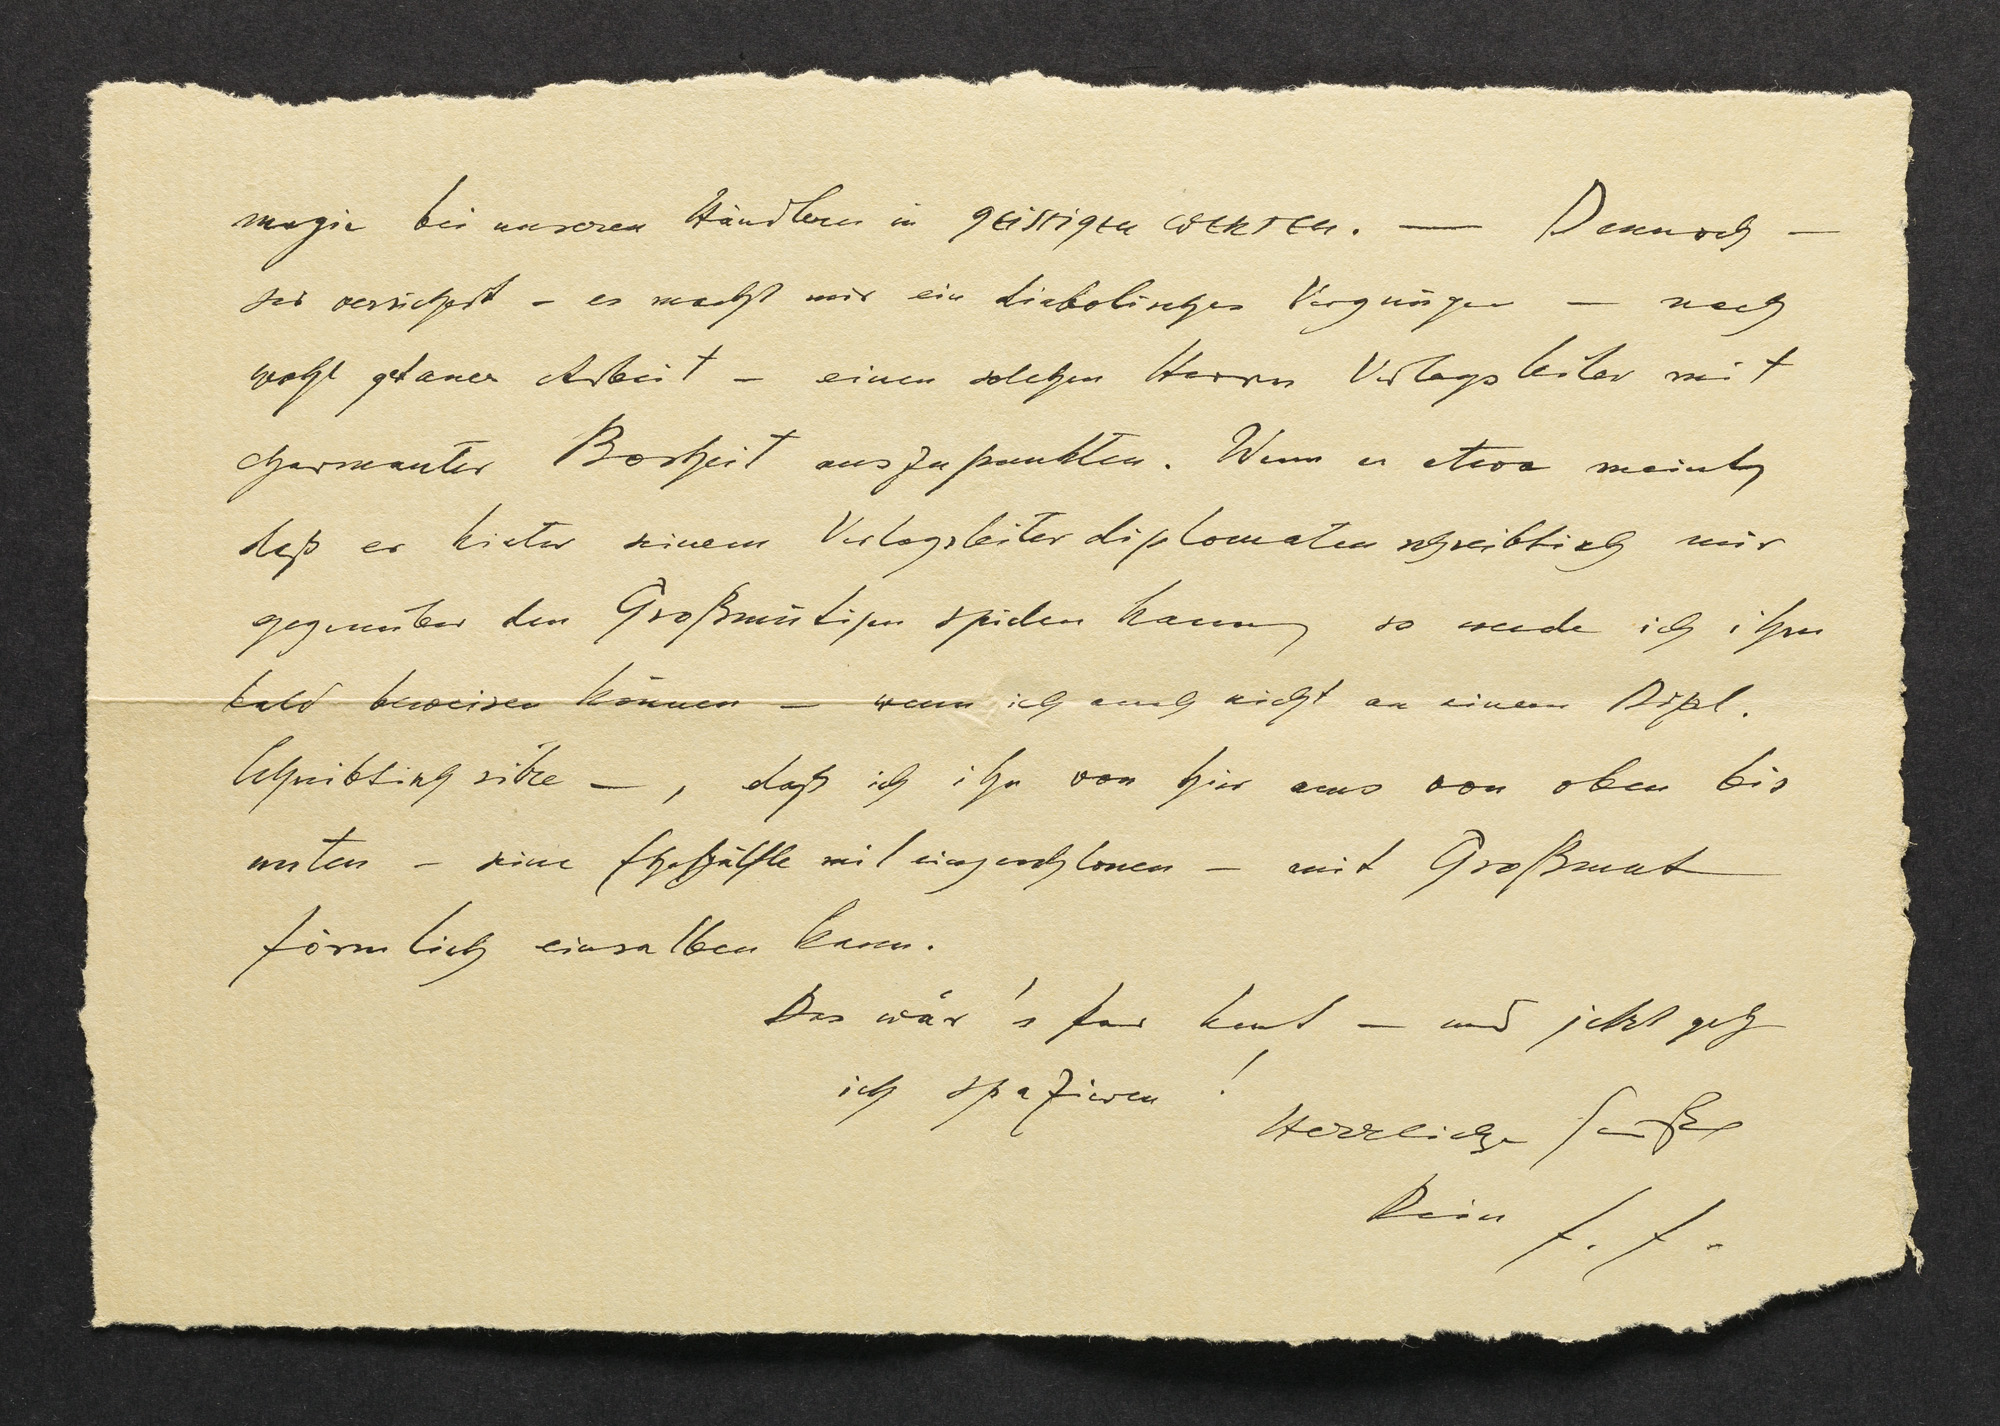 magie bei unseren Händlern in geistigen werten. — Dennoch —
sei versichert – es macht mir ein diabolisches Vergnügen — nach
wohl getaner Arbeit – einen solchen Herrn Verlagsleiter mit
charmanter Bosheit auszupunkten. Wenn er etwa meint,
daß er hinter seinem Verlagsleiterdiplomatenschreibtisch mir
gegenüber den Großmütigen spielen kann, so werde ich ihm
bald beweisen können – wenn ich auch nicht an einem Dipl.
Schreibtisch sitze –, daß ich ihn von hier aus von oben bis
unten – seine Ehehälfte mit eingeschlossen – mit Großmut
förmlich einsalben kann.
Das wär's für heut – und jetzt geh
ich spazieren!
Herzliche Grüße
Dein f. f.